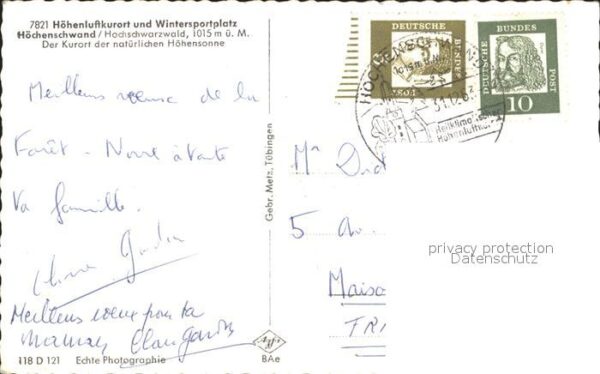 7821 Höhenluftkurort und Wintersportplatz
Höchenschwand / Hochschwarzwald, 1015 m ü. M.
Der Kurort der natürlichen Höhensonne
Meilleurs voeux de la
Forêt - Noire à toute
ta famille.
Meilleurs voeux pour ta
maman
118 D 121 Echte Photographie
Gebr. Metz, Tübingen
Agfa
BAe
DEUTSCHE
BUNDES
POST
5
DEUTSCHE
BUNDES
POST
10
HÖCHENSCHWAND
31.12.63
Heilklimatischer
Höhenluftkurort
Mr
5 Av.
Maiso
FR
privacy protection
Datenschutz